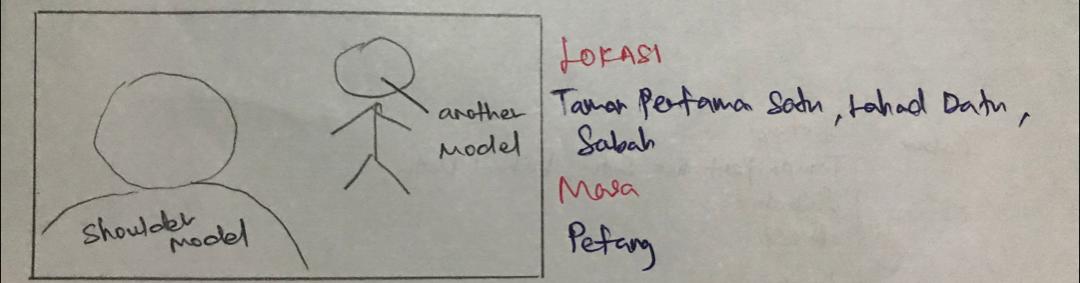 another
model
shoulder
model
LOKASI
Taman Pertama Satu, Lahad Datu,
Sabah
Masa
Petang